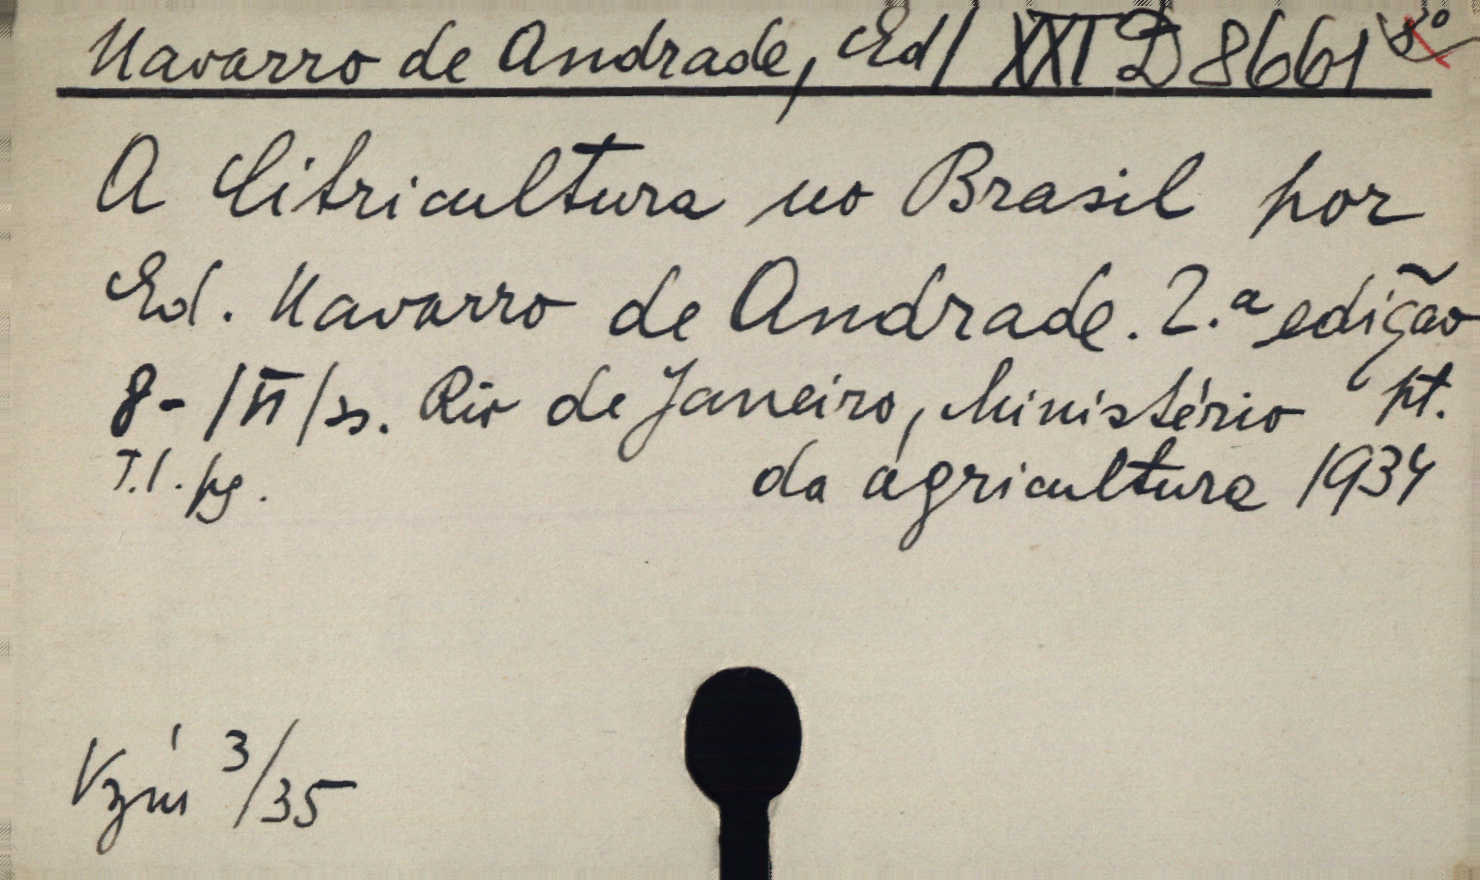 Navarro de Andrade, Ed/ XXI D 8661 8°
A Citricultura no Brasil por
Ed. Navarro de Andrade. 2.ª edição
8- /VI/ss. Rio de Janeiro, Ministério pt.
T.I. pg. da agricultura 1934
Vzín 3/35